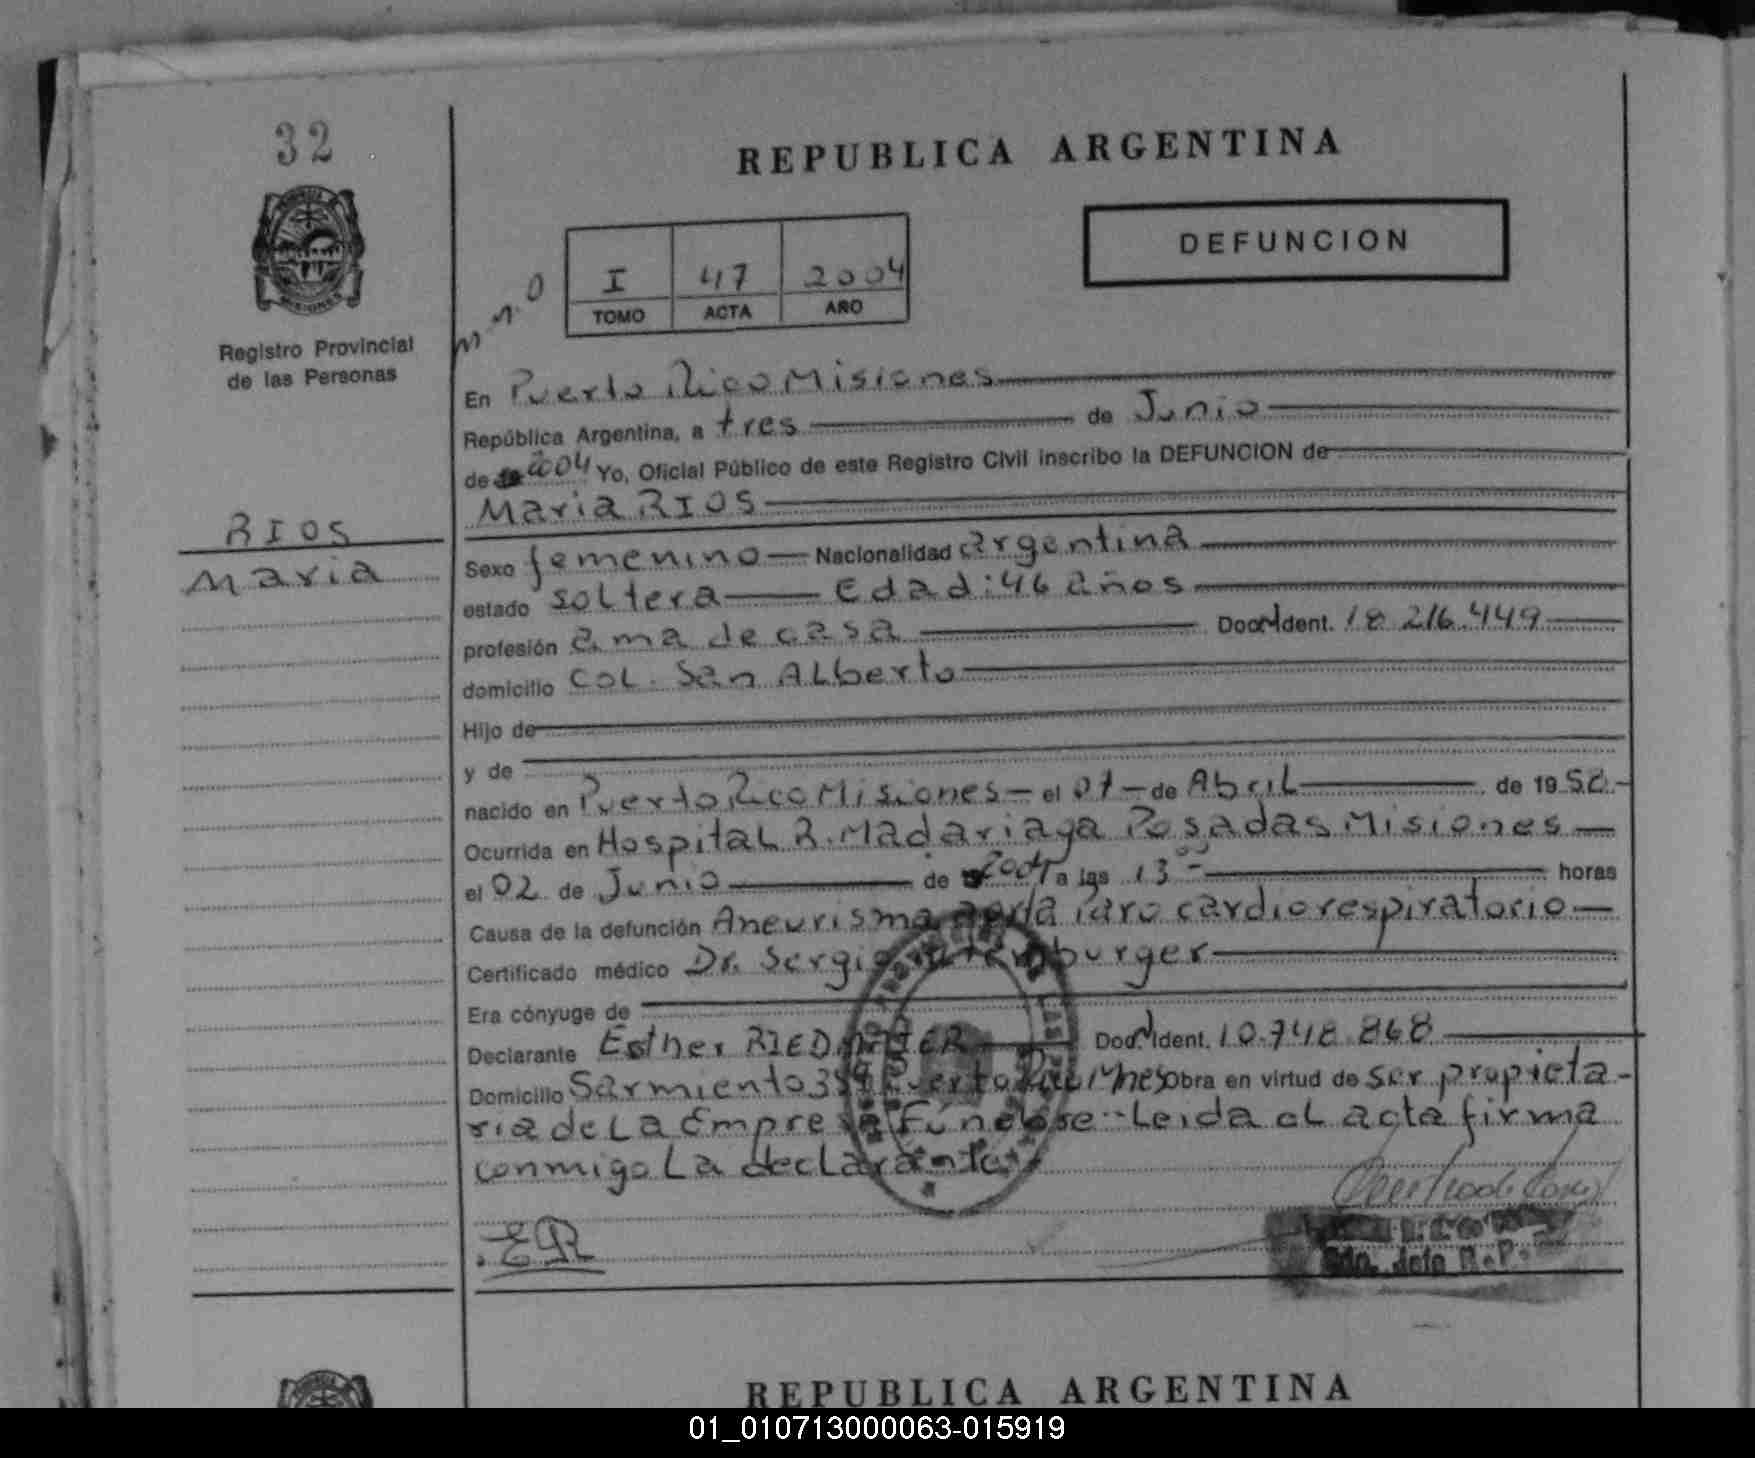 32
REPUBLICA ARGENTINA
DEFUNCION
I 47 2004
TOMO ACTA AÑO
Registro Provincial
de las Personas
MISIONES
En Puerto Rico Misiones
República Argentina, a tres de Junio
de 2004 Yo, Oficial Público de este Registro Civil inscribo la DEFUNCION de
Maria RIOS
RIOS
Maria
Sexo femenino Nacionalidad argentina
estado soltera Edad: 46 años
profesión ama de casa Doc. Ident. 18.216.449
domicilio Col. San Alberto
Hijo de
y de
nacido en Puerto Rico Misiones el 01 de Abril de 19
Ocurrida en Hospital R. Madariaga Posadas Misiones
el 02 de Junio de 2004 a las 13 horas
Causa de la defunción Aneurisma paro cardiorespiratorio
Certificado médico Dr. Sergio
Era cónyuge de
Declarante Esther Doc. Ident. 10.748.868
Domicilio Sarmiento Puerto Rico Mnes Obra en virtud de ser propieta-
ria de La Empresa Fúnebre - Leida el acta firma
conmigo La declarante
ER
REPUBLICA ARGENTINA
01_010713000063-015919